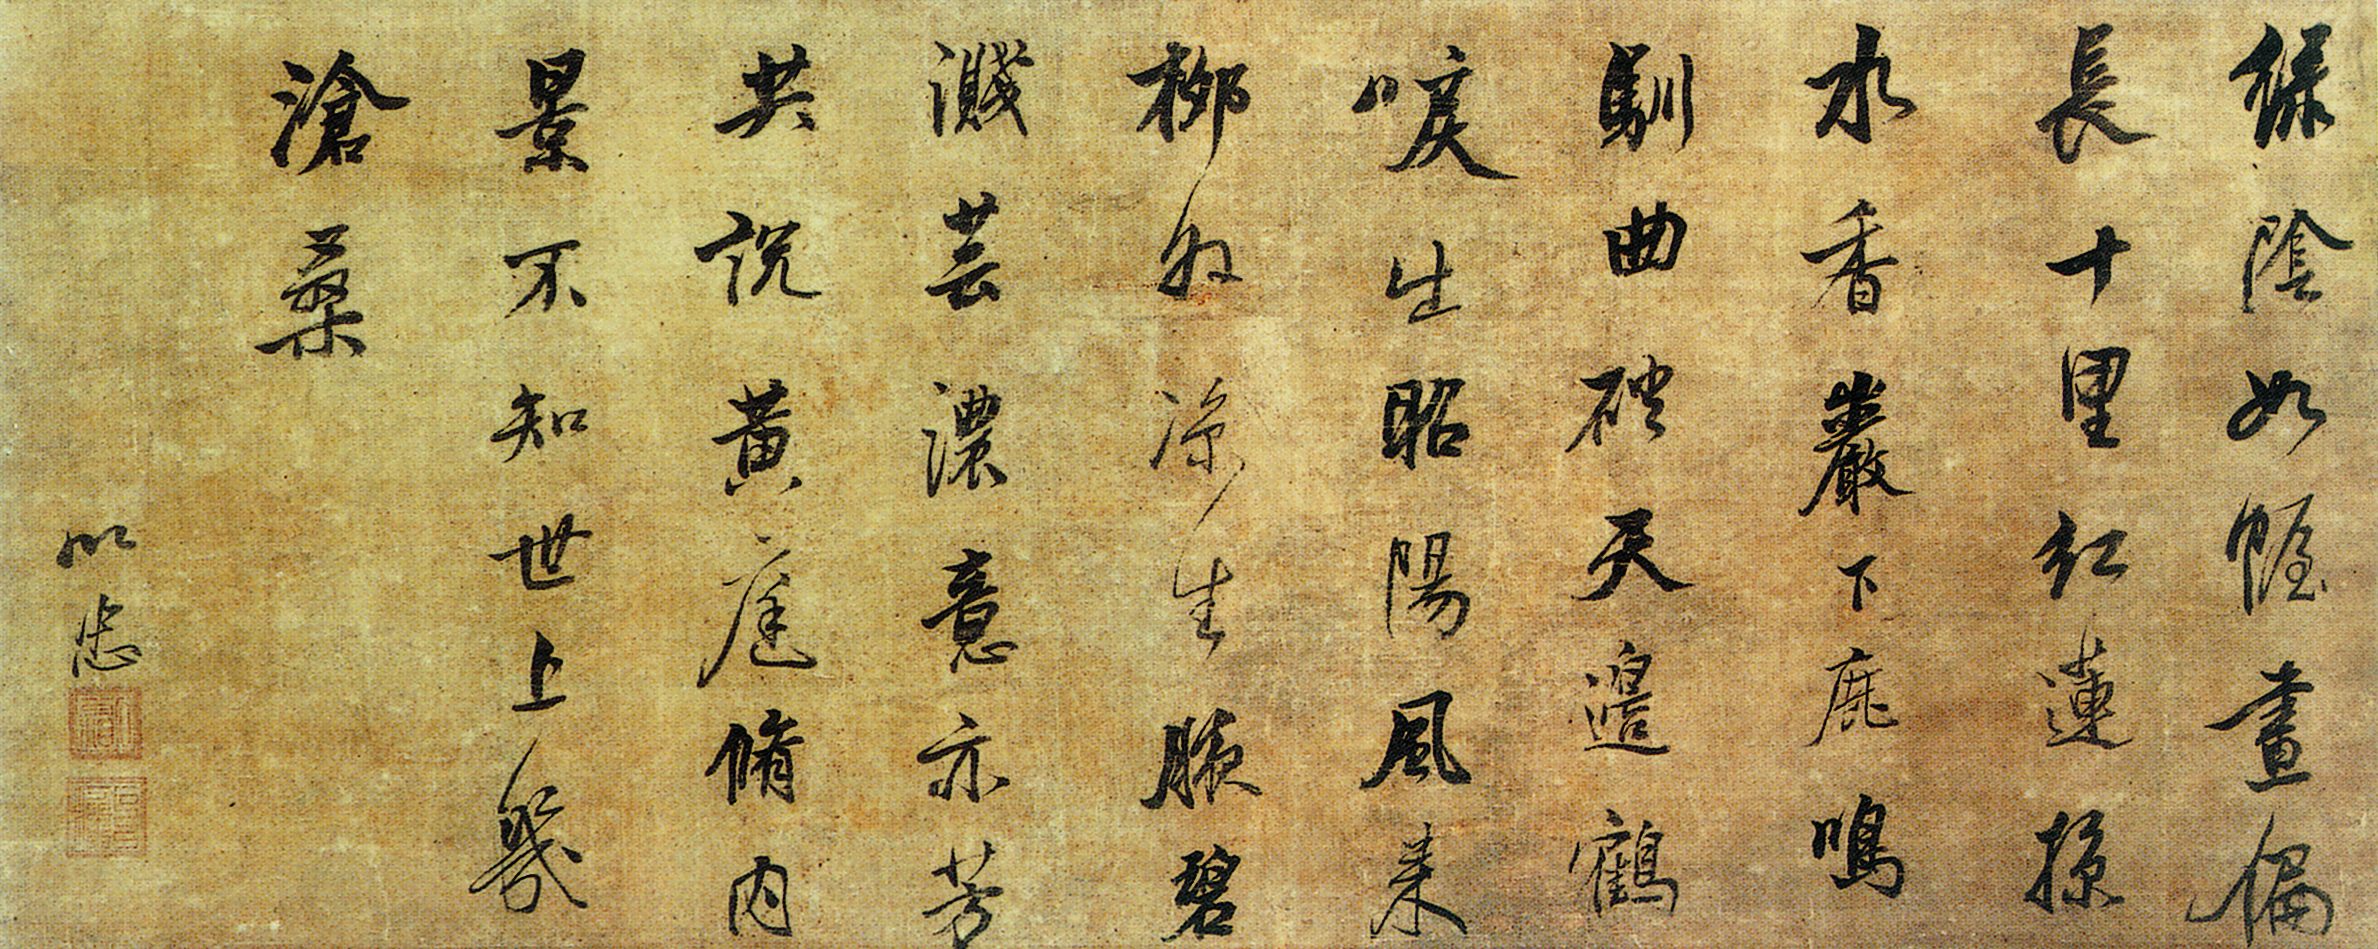 綠陰如幄晝偏
長十里紅蓮掠
水香巖下鹿鳴
馴曲磴天邊鶴
唳出昭陽風來
柳如涼生腋碧
濺芸濃意亦芳
共說黃庭脩內
景不知世上幾
滄桑